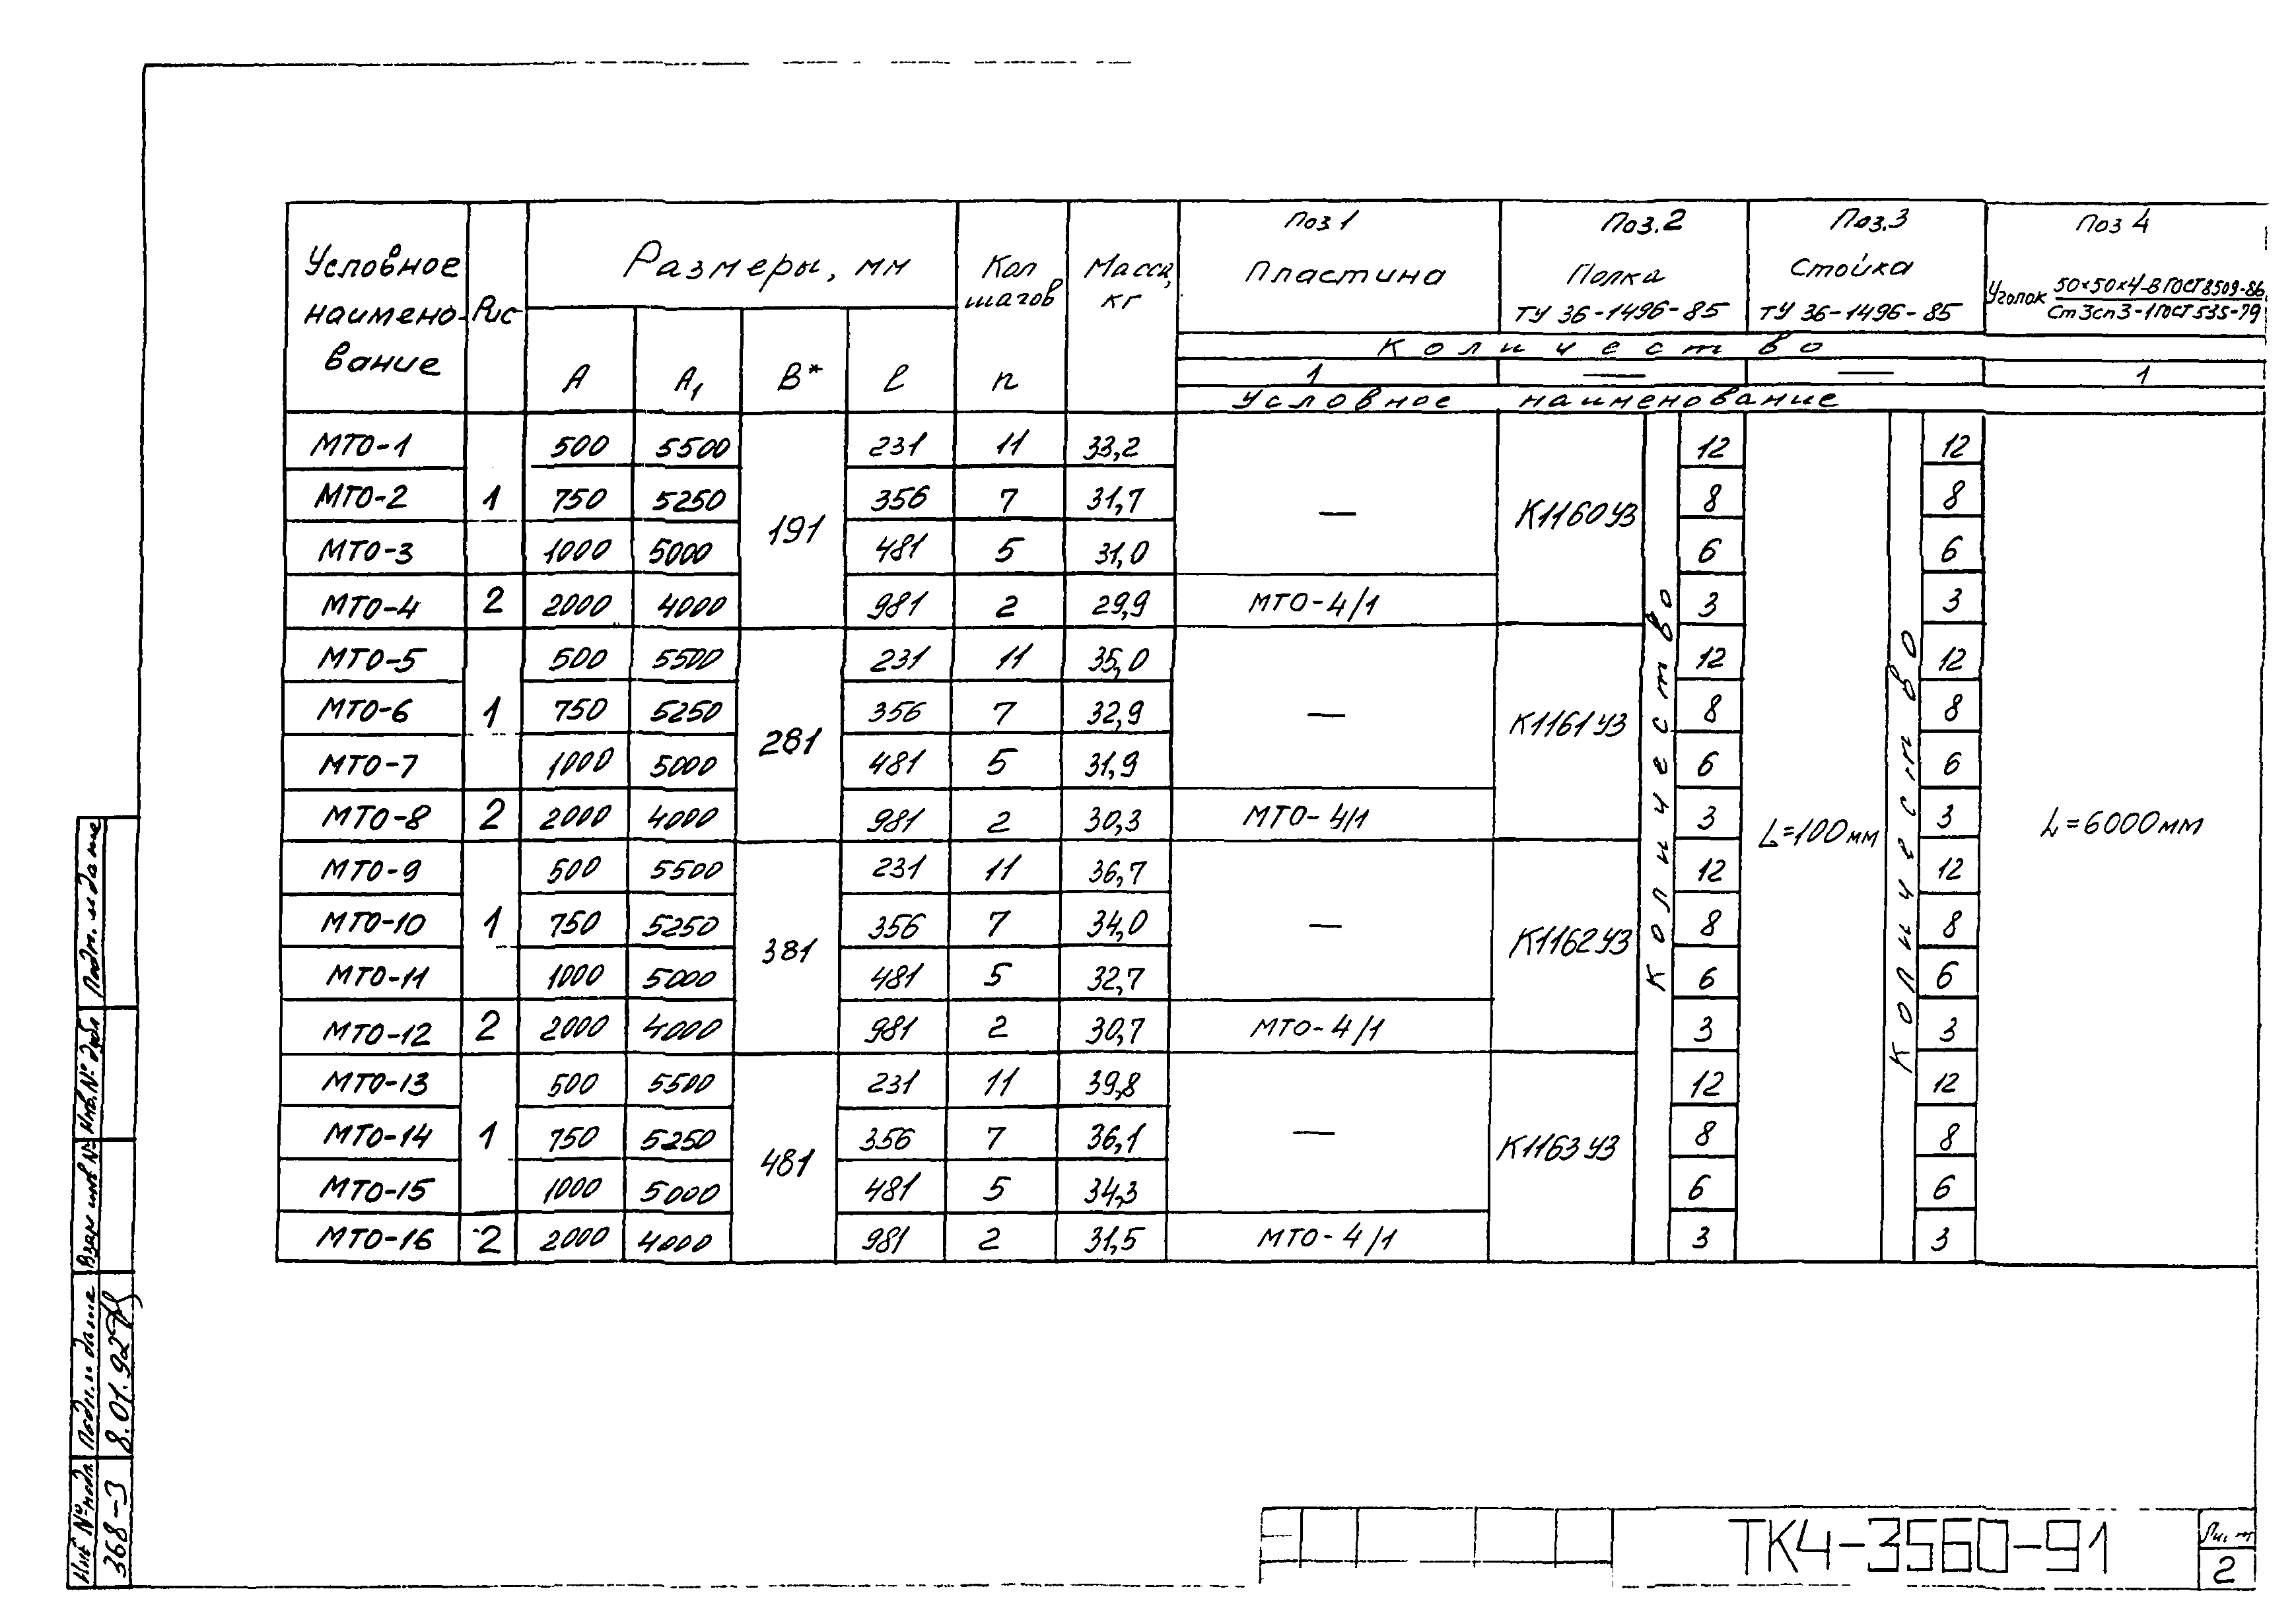 Условное наименование Рис Размеры, мм Кол шагов Масса, кг Поз 1 Пластина Поз.2 Полка ТУ 36-1496-85 Поз.3 Стойка ТУ 36-1496-85 Поз 4 Уголок 50×50×4-В ГОСТ 8509-86 Ст3сп3-1 ГОСТ 535-79
А А1 В* ℓ n
Количество
1 — — 1
Условное наименование
МТО-1 500 5500 231 11 33,2 12 12
МТО-2 1 750 5250 191 356 7 31,7 — К1160У3 8 8
МТО-3 1000 5000 481 5 31,0 6 6
МТО-4 2 2000 4000 981 2 29,9 МТО-4/1 3 3
МТО-5 500 5500 231 11 35,0 12 12
МТО-6 1 750 5250 281 356 7 32,9 — К1161У3 8 8
МТО-7 1000 5000 481 5 31,9 6 6
МТО-8 2 2000 4000 981 2 30,3 МТО-4/1 Количество 3 L=100мм Количество 3 L=6000мм
МТО-9 500 5500 231 11 36,7 12 12
МТО-10 1 750 5250 381 356 7 34,0 — К1162У3 8 8
МТО-11 1000 5000 481 5 32,7 6 6
МТО-12 2 2000 4000 981 2 30,7 МТО-4/1 3 3
МТО-13 500 5500 231 11 39,8 12 12
МТО-14 1 750 5250 481 356 7 36,1 — К1163У3 8 8
МТО-15 1000 5000 481 5 34,3 6 6
МТО-16 2 2000 4000 981 2 31,5 МТО-4/1 3 3
Подп. и дата
Инв. № дубл
Взам инв №
Подп. и дата 8.01.92
Инв № подл. 368-3
ТК4-3560-91
Лист
2